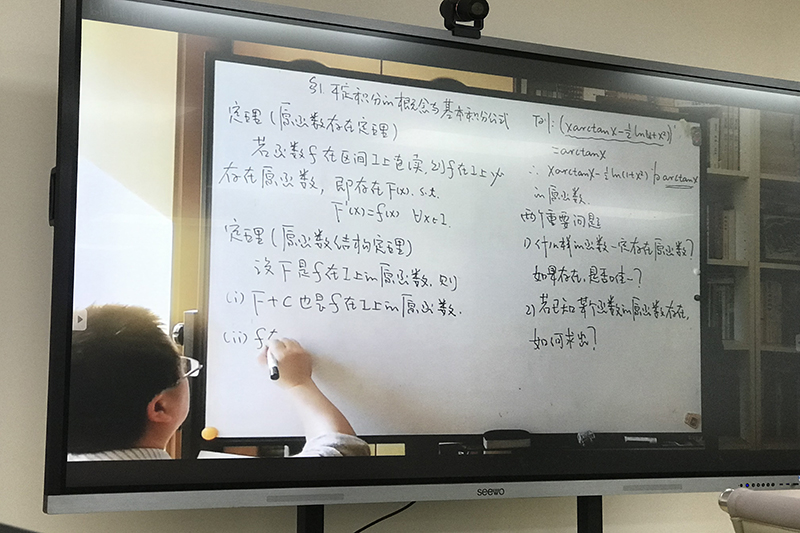 §1 不定积分的概念与基本积分公式
定理(原函数存在定理)
若函数f在区间I上连续,则f在I上必
存在原函数,即存在F(x). s.t.
F'(x)=f(x) ∀x∈I.
定理(原函数结构定理)
设F是f在I上的原函数.则
(i) F+C也是f在I上的原函数.
(ii) f在
(xarctanx-½ln(1+x²))'
=arctanx
∴ xarctanx-½ln(1+x²)为arctanx
的原函数.
两个重要问题
1) 什么样的函数一定存在原函数?
如果存在,是否唯一?
2) 若已知某个函数的原函数存在,
如何求出?
seewo